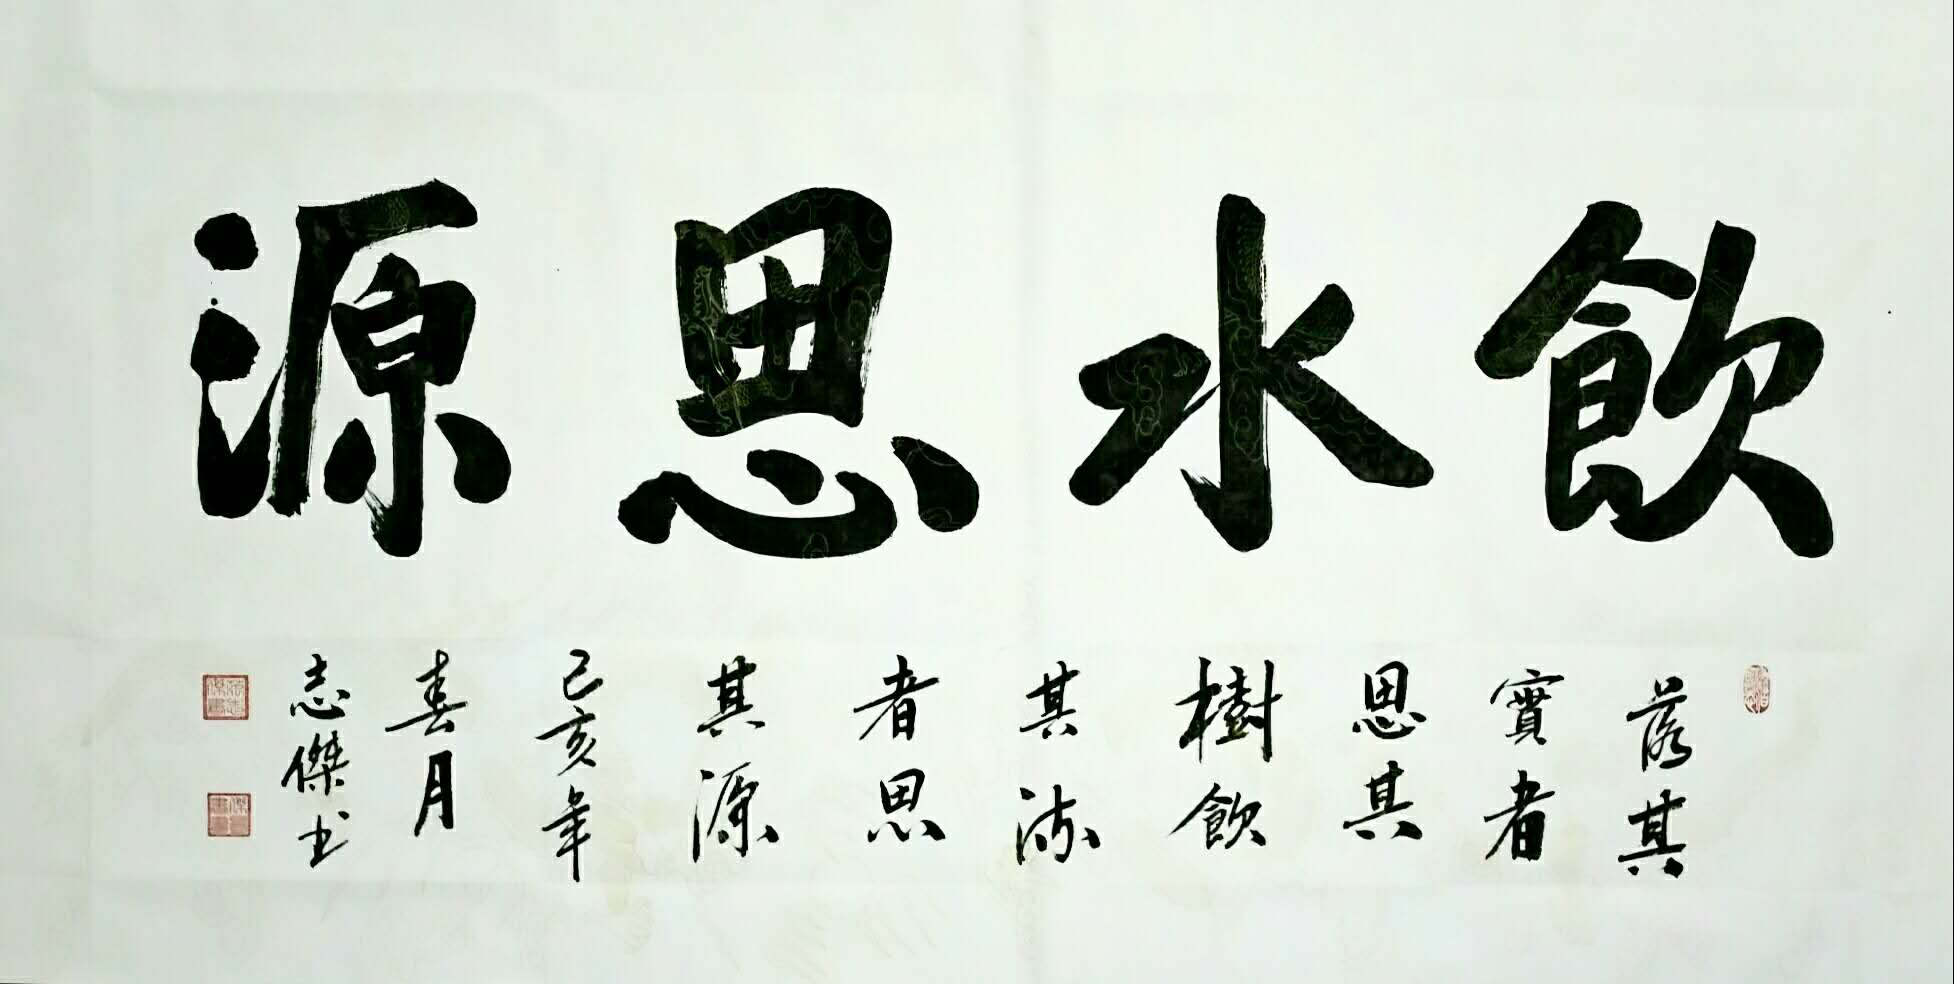 飲水思源
落其
實者
思其
樹飲
其流
者思
其源
己亥年
春月
志傑书